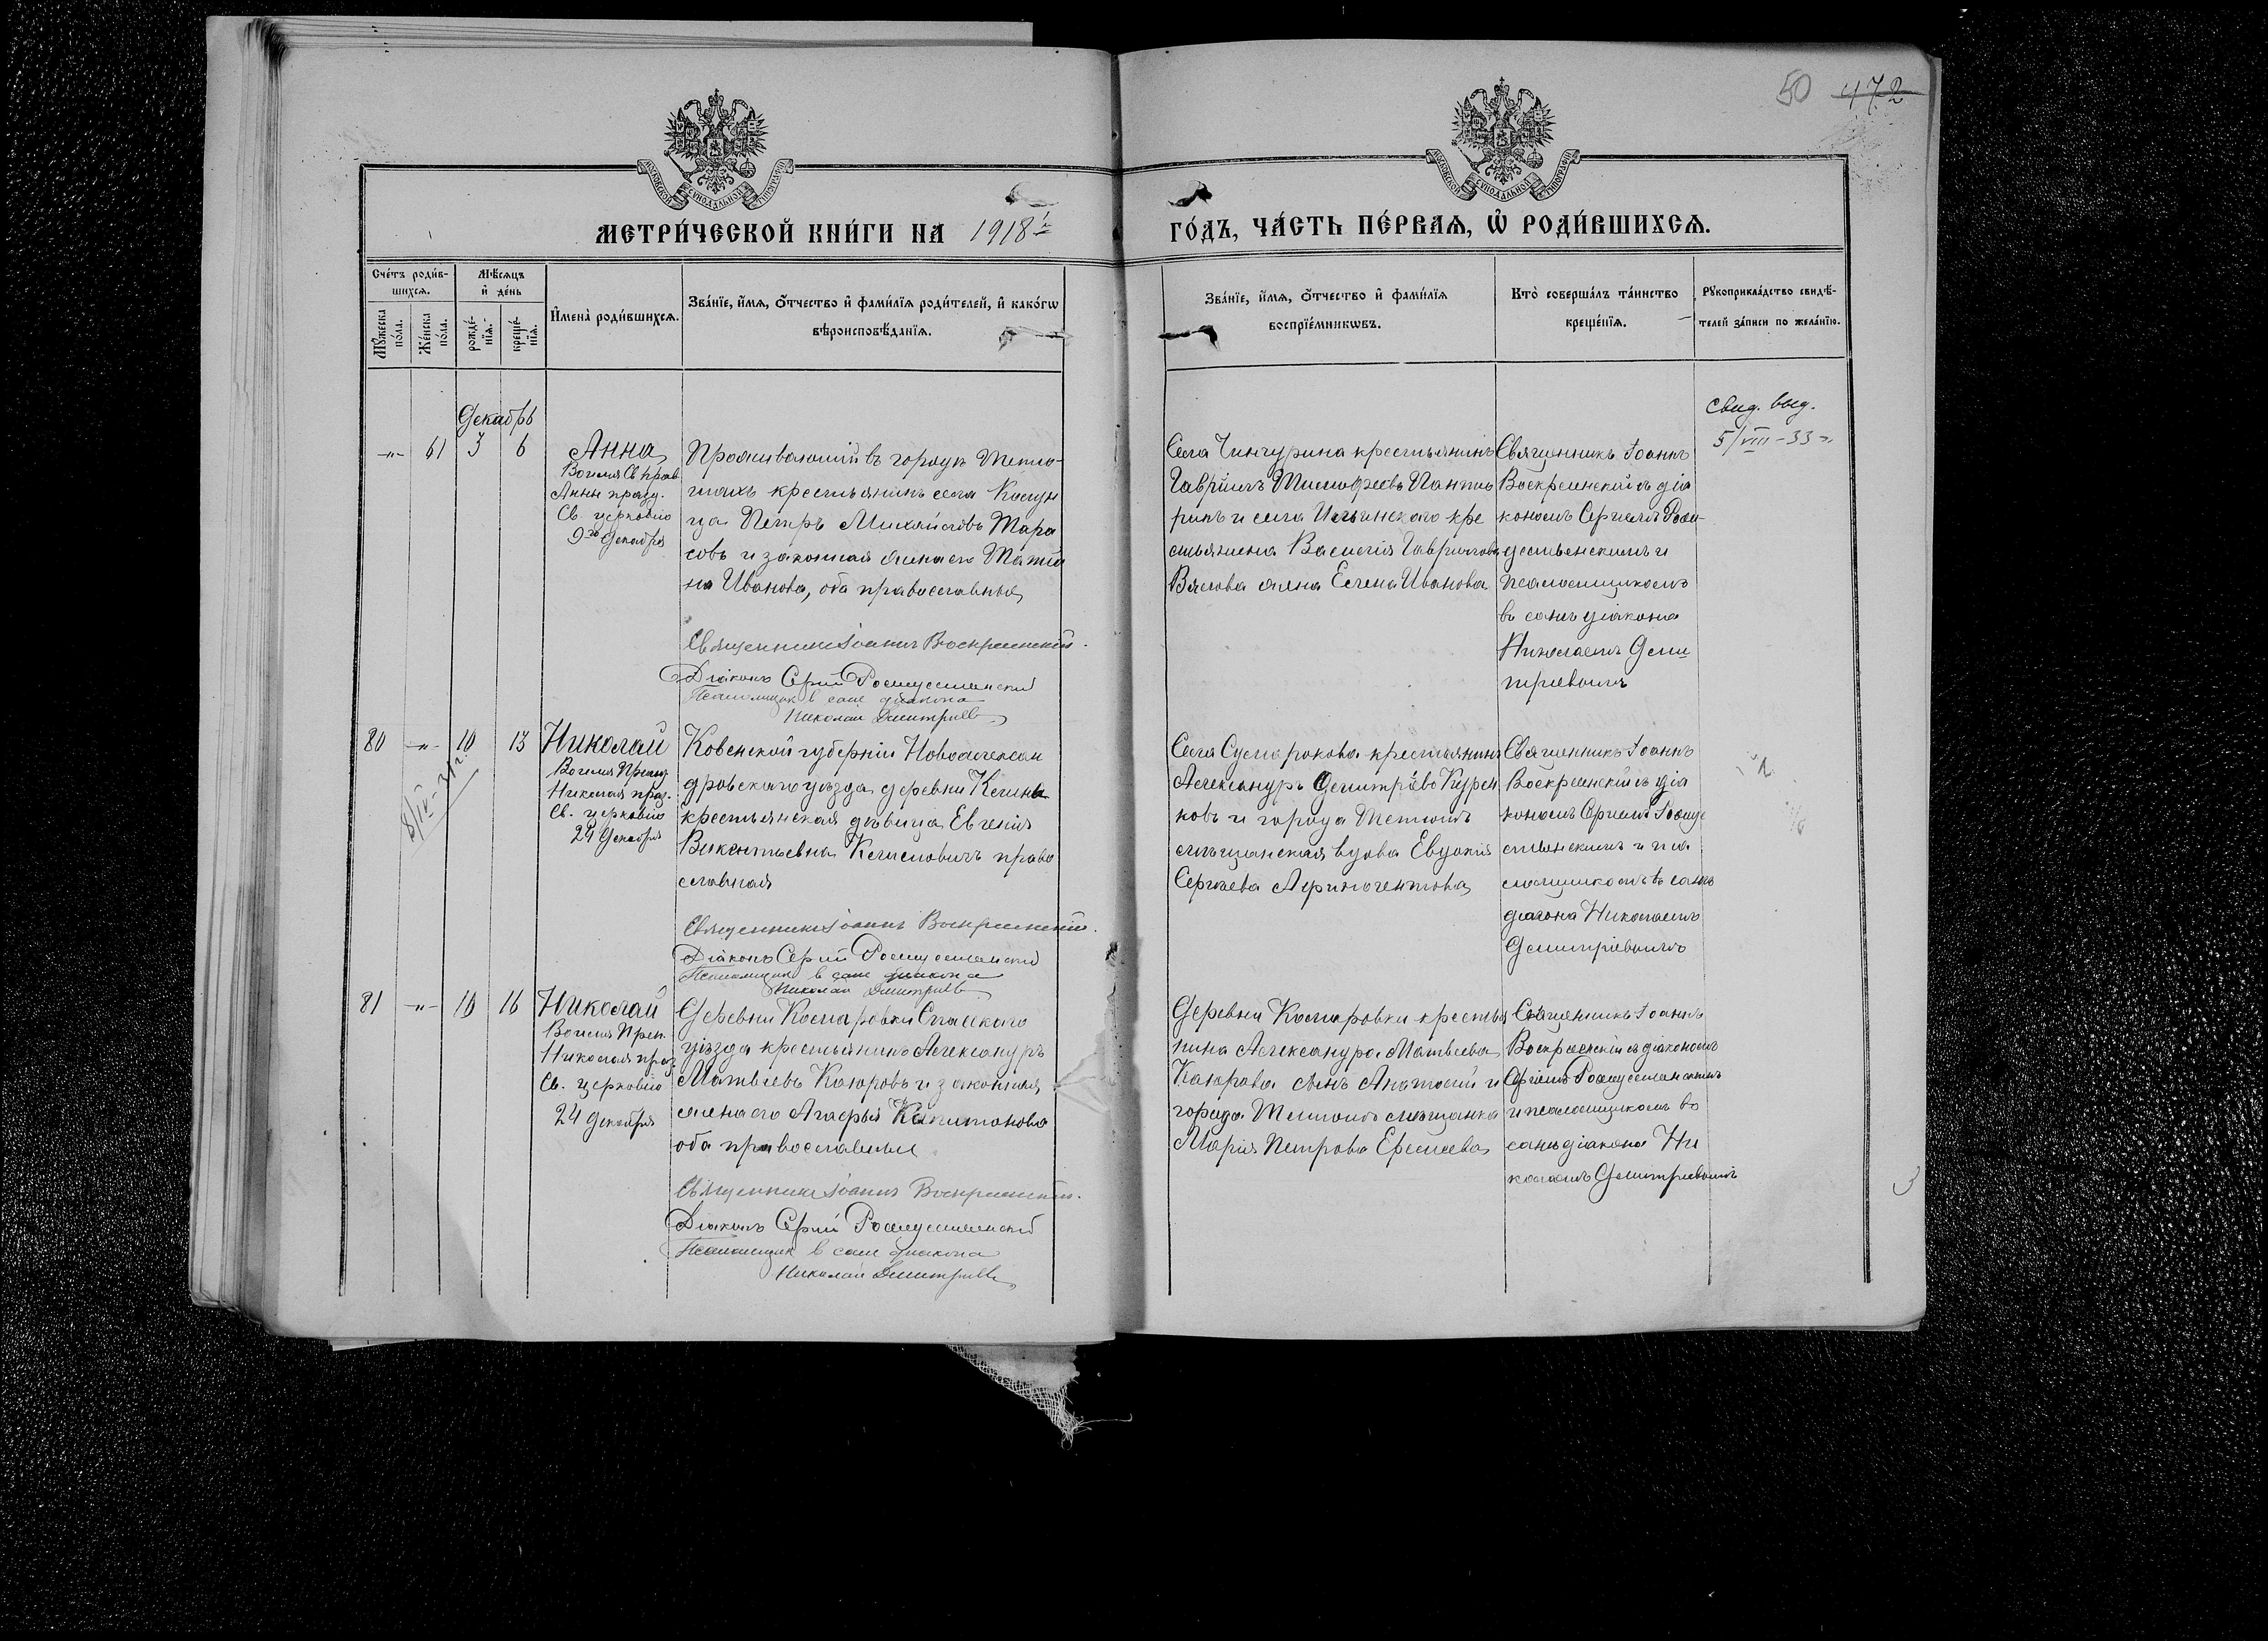 50 472
МОСКОВСКОЙ СУНОДАЛЬНОЙ ТИПОГРАФІИ
МОСКОВСКОЙ СУНОДАЛЬНОЙ ТИПОГРАФІИ
МЕТРИ́ЧЕСКОЙ КНИ́ГИ НА 1918 й
ГО́ДЪ, ЧА́СТЬ ПЕ́РВАѦ, Ѡ҆ РОДИ́ВШИХСѦ.
Сче́тъ роди́в-
шихсѧ.
Мꙋ́жеска
по́ла.
Же́нска
по́ла.
Мѣ́сѧцъ
и҆ де́нь
рожде́-
нїѧ.
креще́-
нїѧ.
И҆мена̀ роди́вшихсѧ.
Зва́нїе, и҆́мѧ, ѻ҆́тчество и҆ фами́лїѧ роди́телей, и҆ како́гѡ
вѣроисповѣ́данїѧ.
Зва́нїе, и҆́мѧ, ѻ҆́тчество и҆ фами́лїѧ
воспрїе́мникѡвъ.
Кто̀ соверша́лъ та́инство
креще́нїѧ.
Рꙋкоприкла́дство свидѣ́-
телей за́писи по жела́нїю.
Декабрь
-„- 61 3 6
Анна
Во имя Св прав
Анны празд.
Св. церковію
9го Декабря
Проживающій въ городѣ Тетю-
шахъ крестьянинъ села
Петръ Михайловъ Тара
совъ и законная жена его Татія
на Иванова, оба православные
Священникъ Іоаннъ Воскресенскій.
Діаконъ Сергій Рождественский
Псаломщик в сане диакона
Николай Дмитриев
Села Чинчурина крестьянинъ
Гавріилъ Тимофеевъ
ринъ и села Ильинскаго кре
стьянина Василія Гаврилова
жена Елена Иванова
Священникъ Іоаннъ
Воскресенскій съ діа
кономъ Сергіемъ Рож-
дественскимъ и
псаломщикомъ
въ санѣ діакона
Николаемъ Дими
тріевымъ
Свид. выд.
5/VIII-33 г.
80 -„- 10 13
8/IV-31 г.
Николай
Во имя
Николая праз.
Св. церковію
24 Декабря
Ковенской губерніи Новоалексан
дровскаго уѣзда деревни
крестьянская дѣвица Евгенія
Викентьевна право
славная
Священникъ Іоаннъ Воскресенскій.
Діаконъ Сергій Рождественский
Псаломщик в сане диакона
Николай Дмитриев
Села Сумарокова крестьянинъ
Александръ Димитріевъ Курен
ковъ и города Тетюшъ
мѣщанская вдова Евдокія
Сергѣева
Священникъ Іоаннъ
Воскресенскій съ діа
кономъ Сергіемъ Рожде
ственскимъ и пса
ломщикомъ въ санѣ
діакона Николаемъ
Димитріевымъ
81 -„- 10 16
Николай
Во имя Преп.
Николая праз.
Св. церковію
24 Декабря
Деревни Комаровки Спасскаго
уѣзда крестьянинъ Александръ
Матвѣевъ Каюровъ и законная
жена его Агафья Капитонова
оба православные
Священникъ Іоаннъ Воскресенскій.
Діаконъ Сергій Рождественский
Псаломщик в сане диакона
Николай Дмитриев
Деревни Комаровки крестья
нина Александра Матвѣева
Каюрова сынъ Анатолій и
города Тетюшъ мѣщанка
Марія Петрова Еремеева
Священникъ Іоаннъ
Воскресенскій съ діакономъ
Сергіемъ Рождественскимъ
и псаломщикомъ въ
санѣ діакона Ни
колаемъ Димитріевымъ